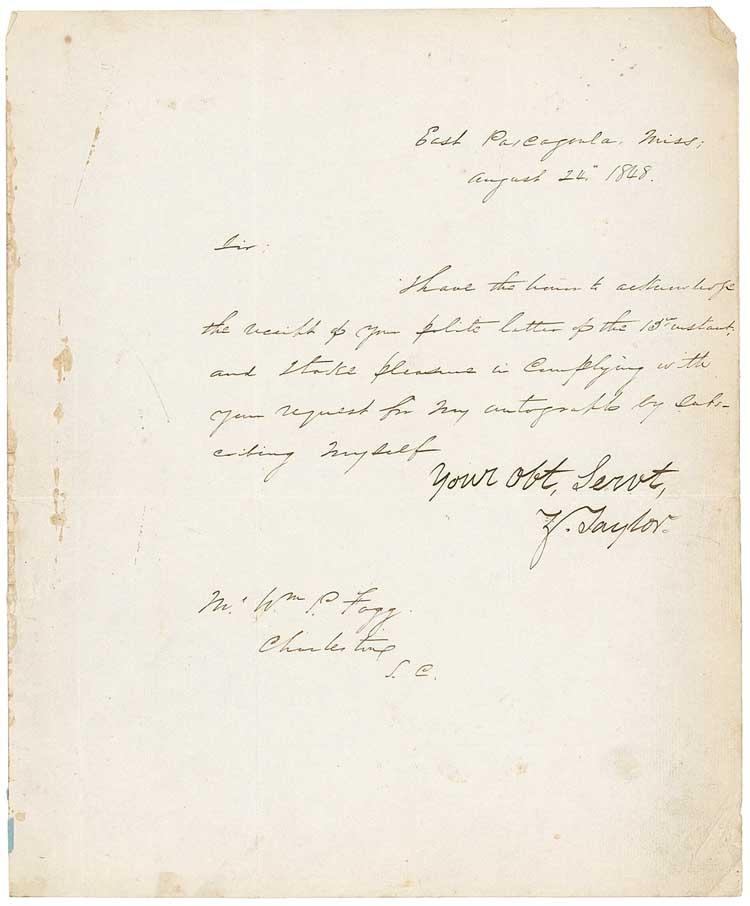 East Pascagoula, Miss;
August 24" 1848.
Sir:
I have the honor to acknowledge
the receipt of your polite letter of the 15" instant,
and I take pleasure in complying with
your request for my autograph by subs-
cribing myself
Your Obt, Servt,
Z. Taylor.
Mr Wm P. Fogg.
Charleston
S. C.